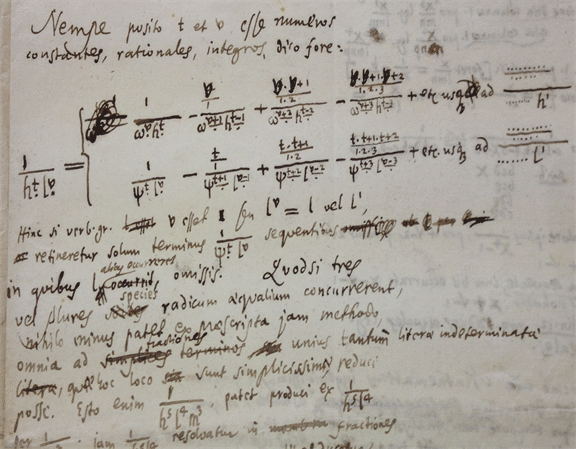 Nempe posito t et v esse numeros
constantes, rationales, integros, dico fore:
1/(h^t l^v) = { 1/(ω^v h^t) − (v/1)/(ω^{v+1} h^{t-1}) + (v.v+1/1.2)/(ω^{v+2} h^{t-2}) − (v.v+1.v+2/1.2.3)/(ω^{v+3} h^{t-3}) + etc. usque ad ........../....... h^1
1/(ψ^t l^v) − (t/1)/(ψ^{t+1} l^{v-1}) + (t.t+1/1.2)/(ψ^{t+2} l^{v-2}) − (t.t+1.t+2/1.2.3)/(ψ^{t+3} l^{v-3}) + etc. usque ad ........../....... l^1
Hinc si verb. gr. v esset 1 seu l^v = l vel l^1
retineretur solum terminus 1/(ψ^t l^v) sequentibus
in quibus l omissis. Quodsi tres
vel plures species radicum aequalium concurrerent,
nihilo minus patet ex praescripta jam methodo
omnia ad fractiones unius tantum litera indeterminata
hoc loco sunt simplicissimae reduci
posse. Esto enim 1/(h^5 l^4 m^3) patet produci ex 1/(h^5 l^4)
jam resolvatur in fractiones